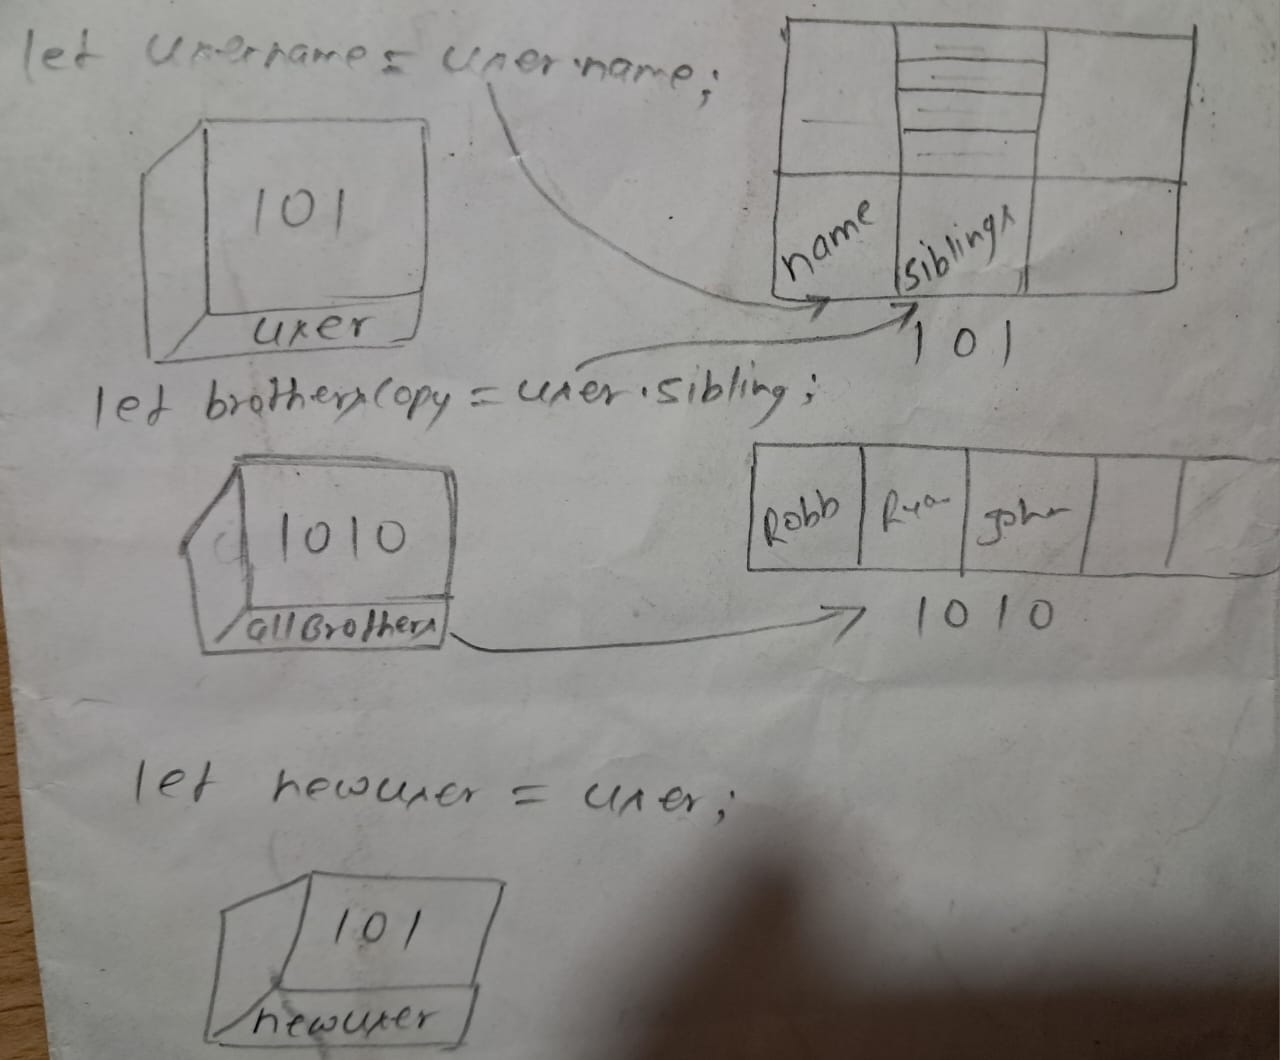 let username = user.name;
101
user
name
siblings
101
let brothersCopy = user.sibling;
1010
allBrothers
Robb Ryan John
1010
let newuser = user;
101
newuser